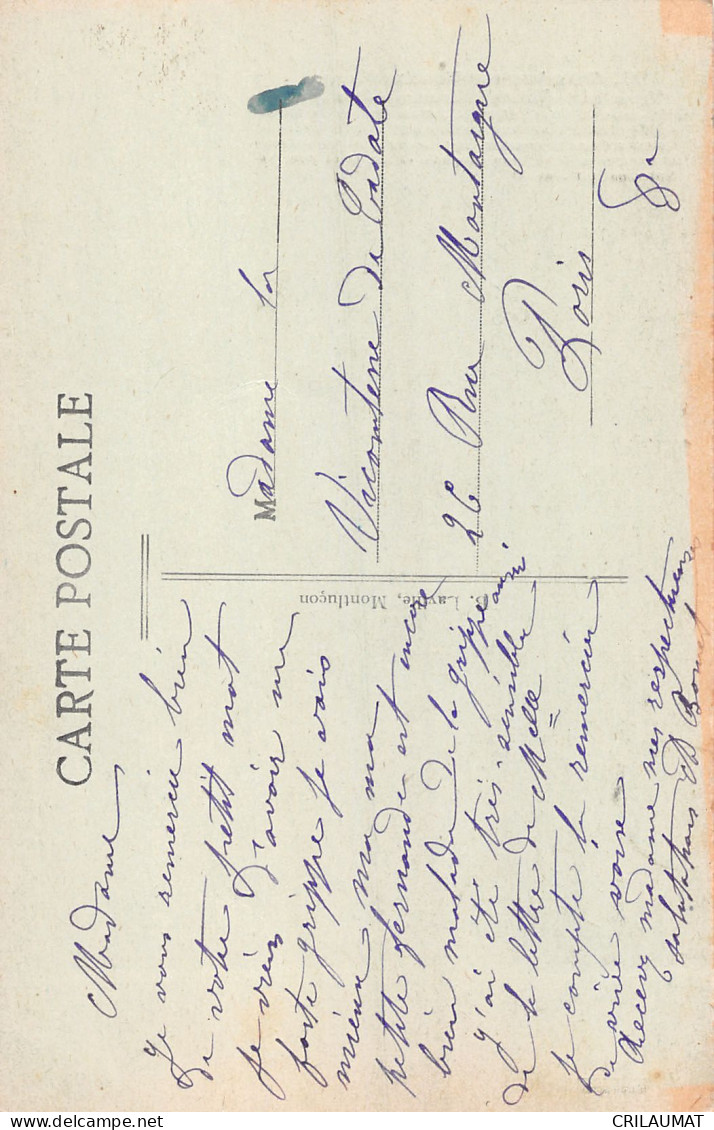 CARTE POSTALE
Madame
Je vous remercie bien
de votre petit mot
je viens d'avoir une
forte grippe je vais
mieux ma ma
petite fernande est encore
bien malade de la grippe aussi
j'ai été très sensible
de la lettre de Melle
je compte la remercier
de vive voix
Recevez madame mes respectueuses
salutations B Bonnet
B. Lavergne, Montluçon
Madame la
Vicomtesse de
26 Rue Montaigne
Paris
8e
CRILAUMAT